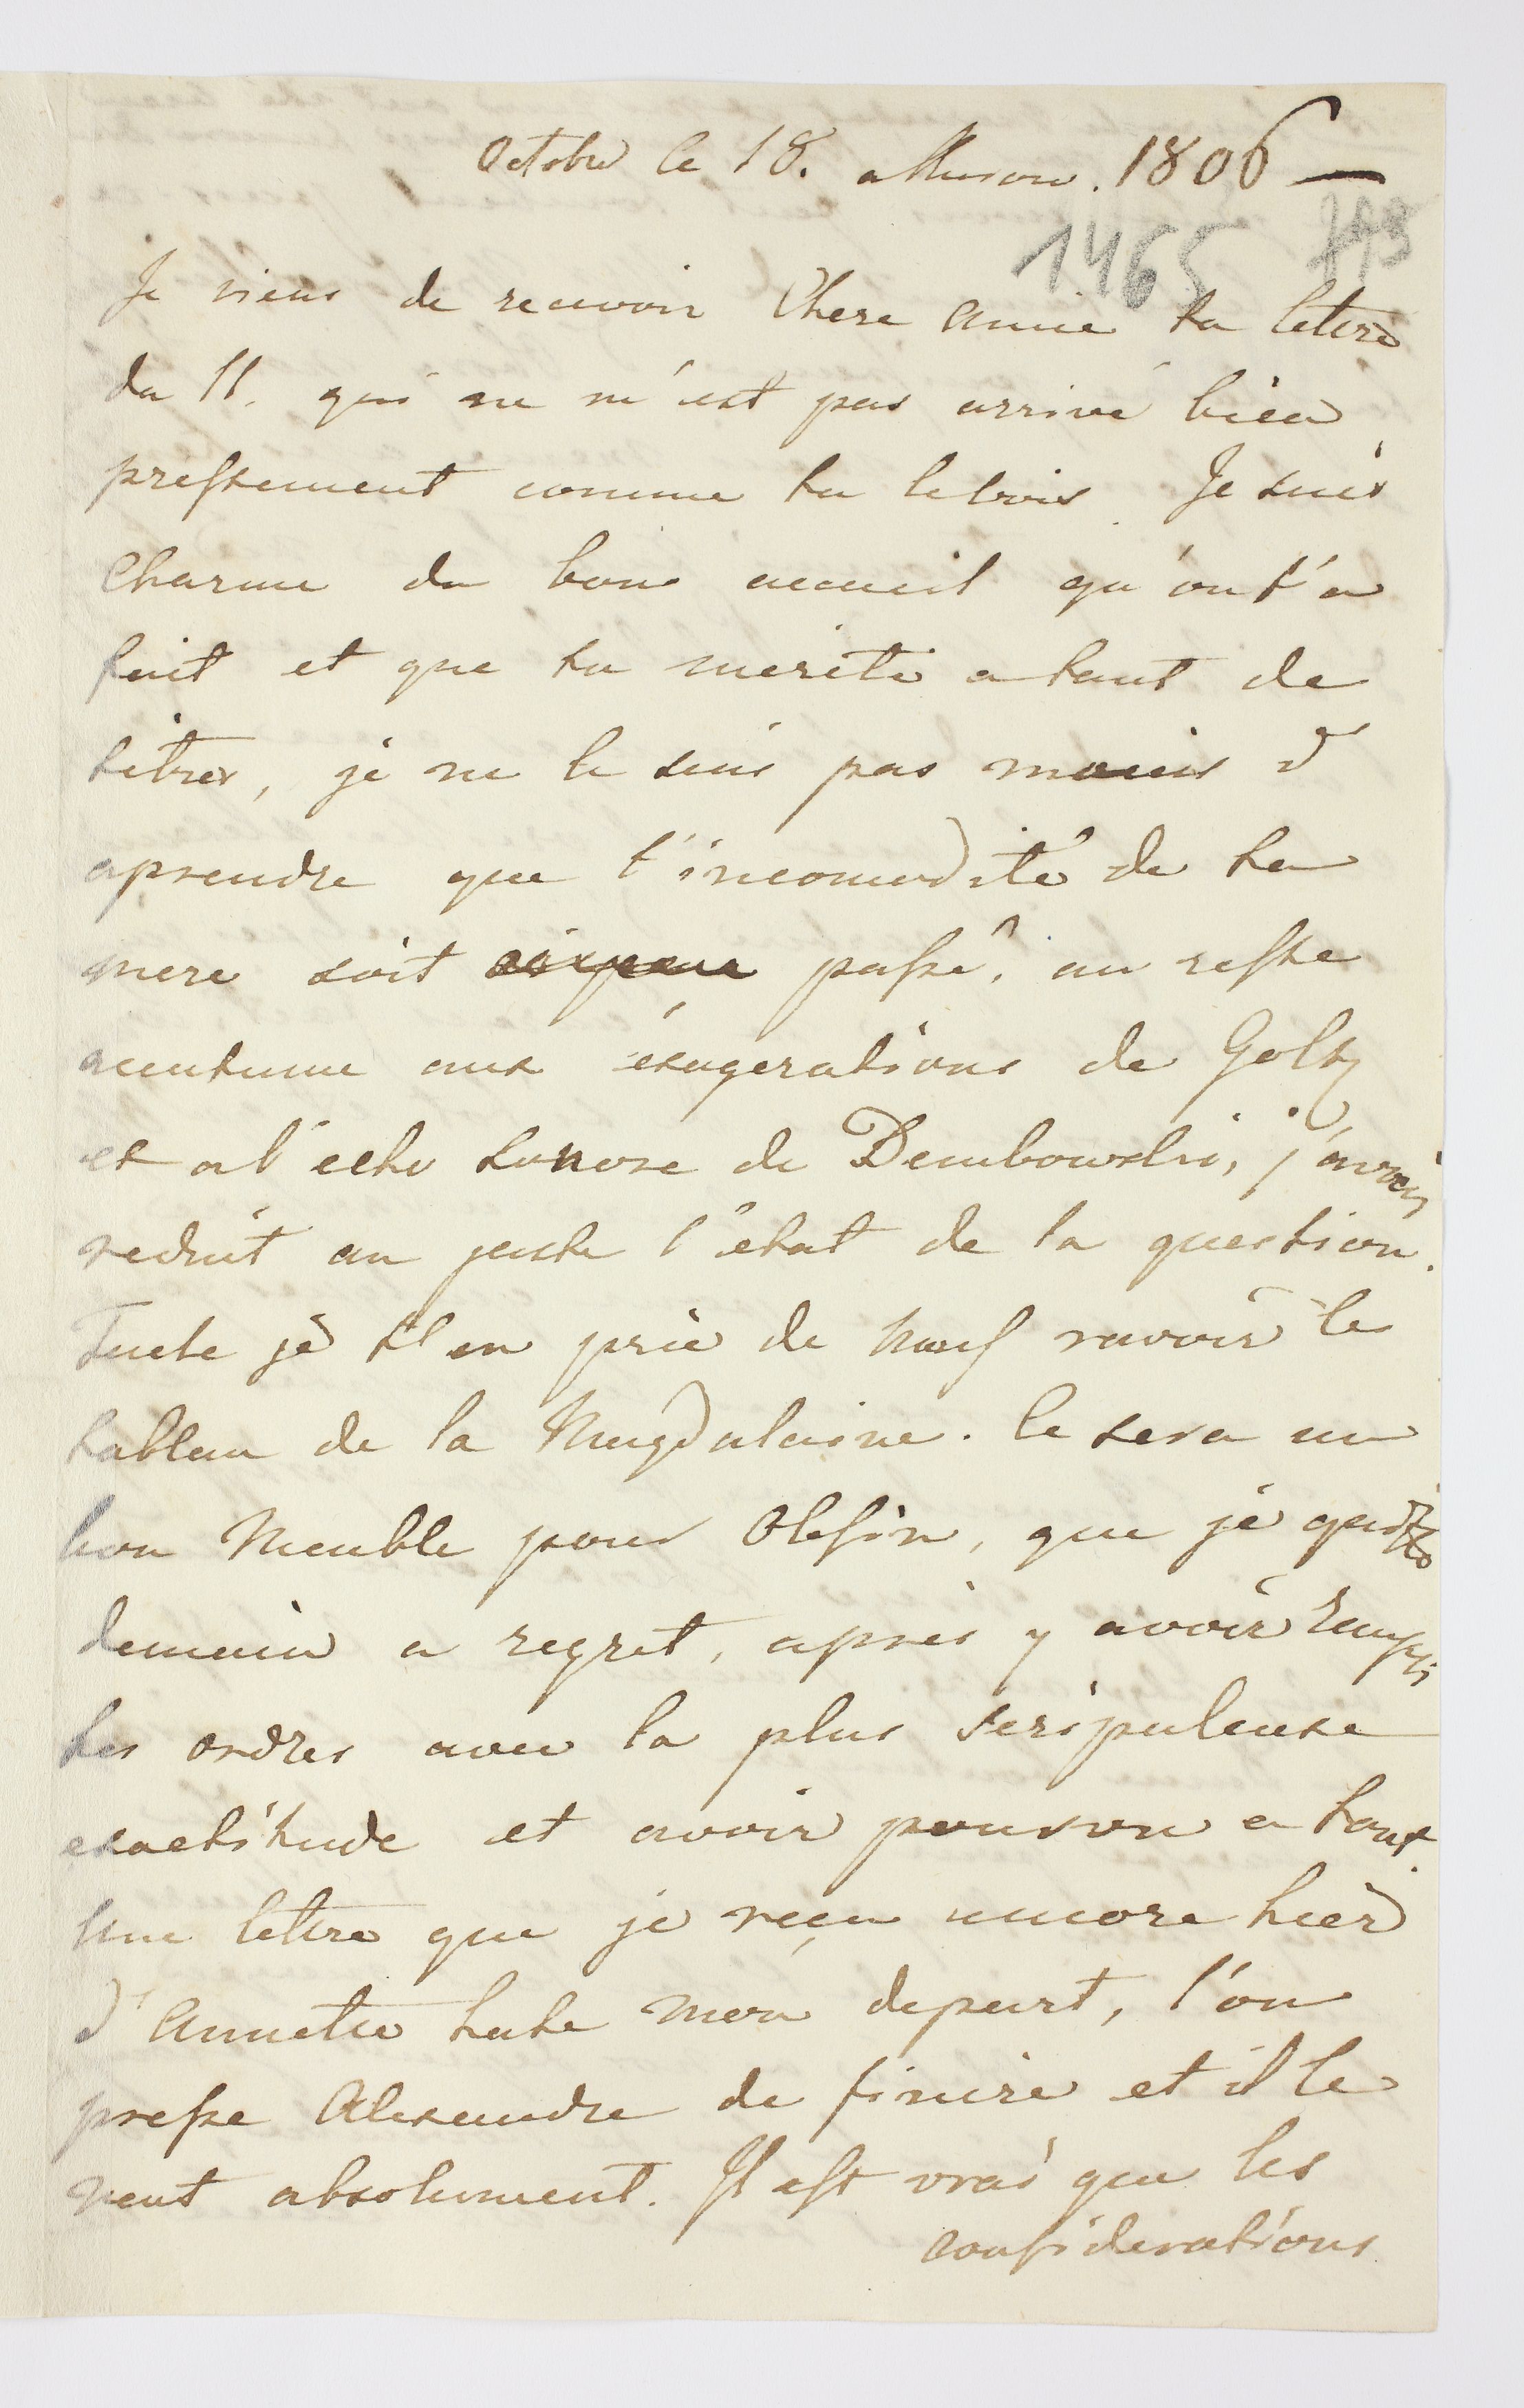 Octobre le 18. a Muron. 1806 —
1465 773
Je viens de recevoir Chere amie ta lettre
du 11. qui ne m'est pas arrivé bien
prestement comme tu le vois. Je suis
Charmé du bon acceuil qu'on t'a
fait et que tu merite a tant de
titres, je ne le suis pas moins d'
aprendre que l'incomodité de ta
mere soit passé, au reste
acutumé aux éxagerations de Goltz
et a l'echo sonore de Dembowski, j'avais
reduit au juste l'état de la question.
Tache je t'en prie de ravoir le
tableau de la Magdalaine. Ce sera un
bon Meuble pour Olesin, que je quitte
demain a regret, apres y avoir rempli
tes ordres avec la plus scripuleuse
exactitude et avoir pourvu a tout.
Une lettre que je reçu encore hier
d'Annette hate mon depart, l'on
presse Alexandre de finire et il le
veut absolument. Il est vrai que les
considerations